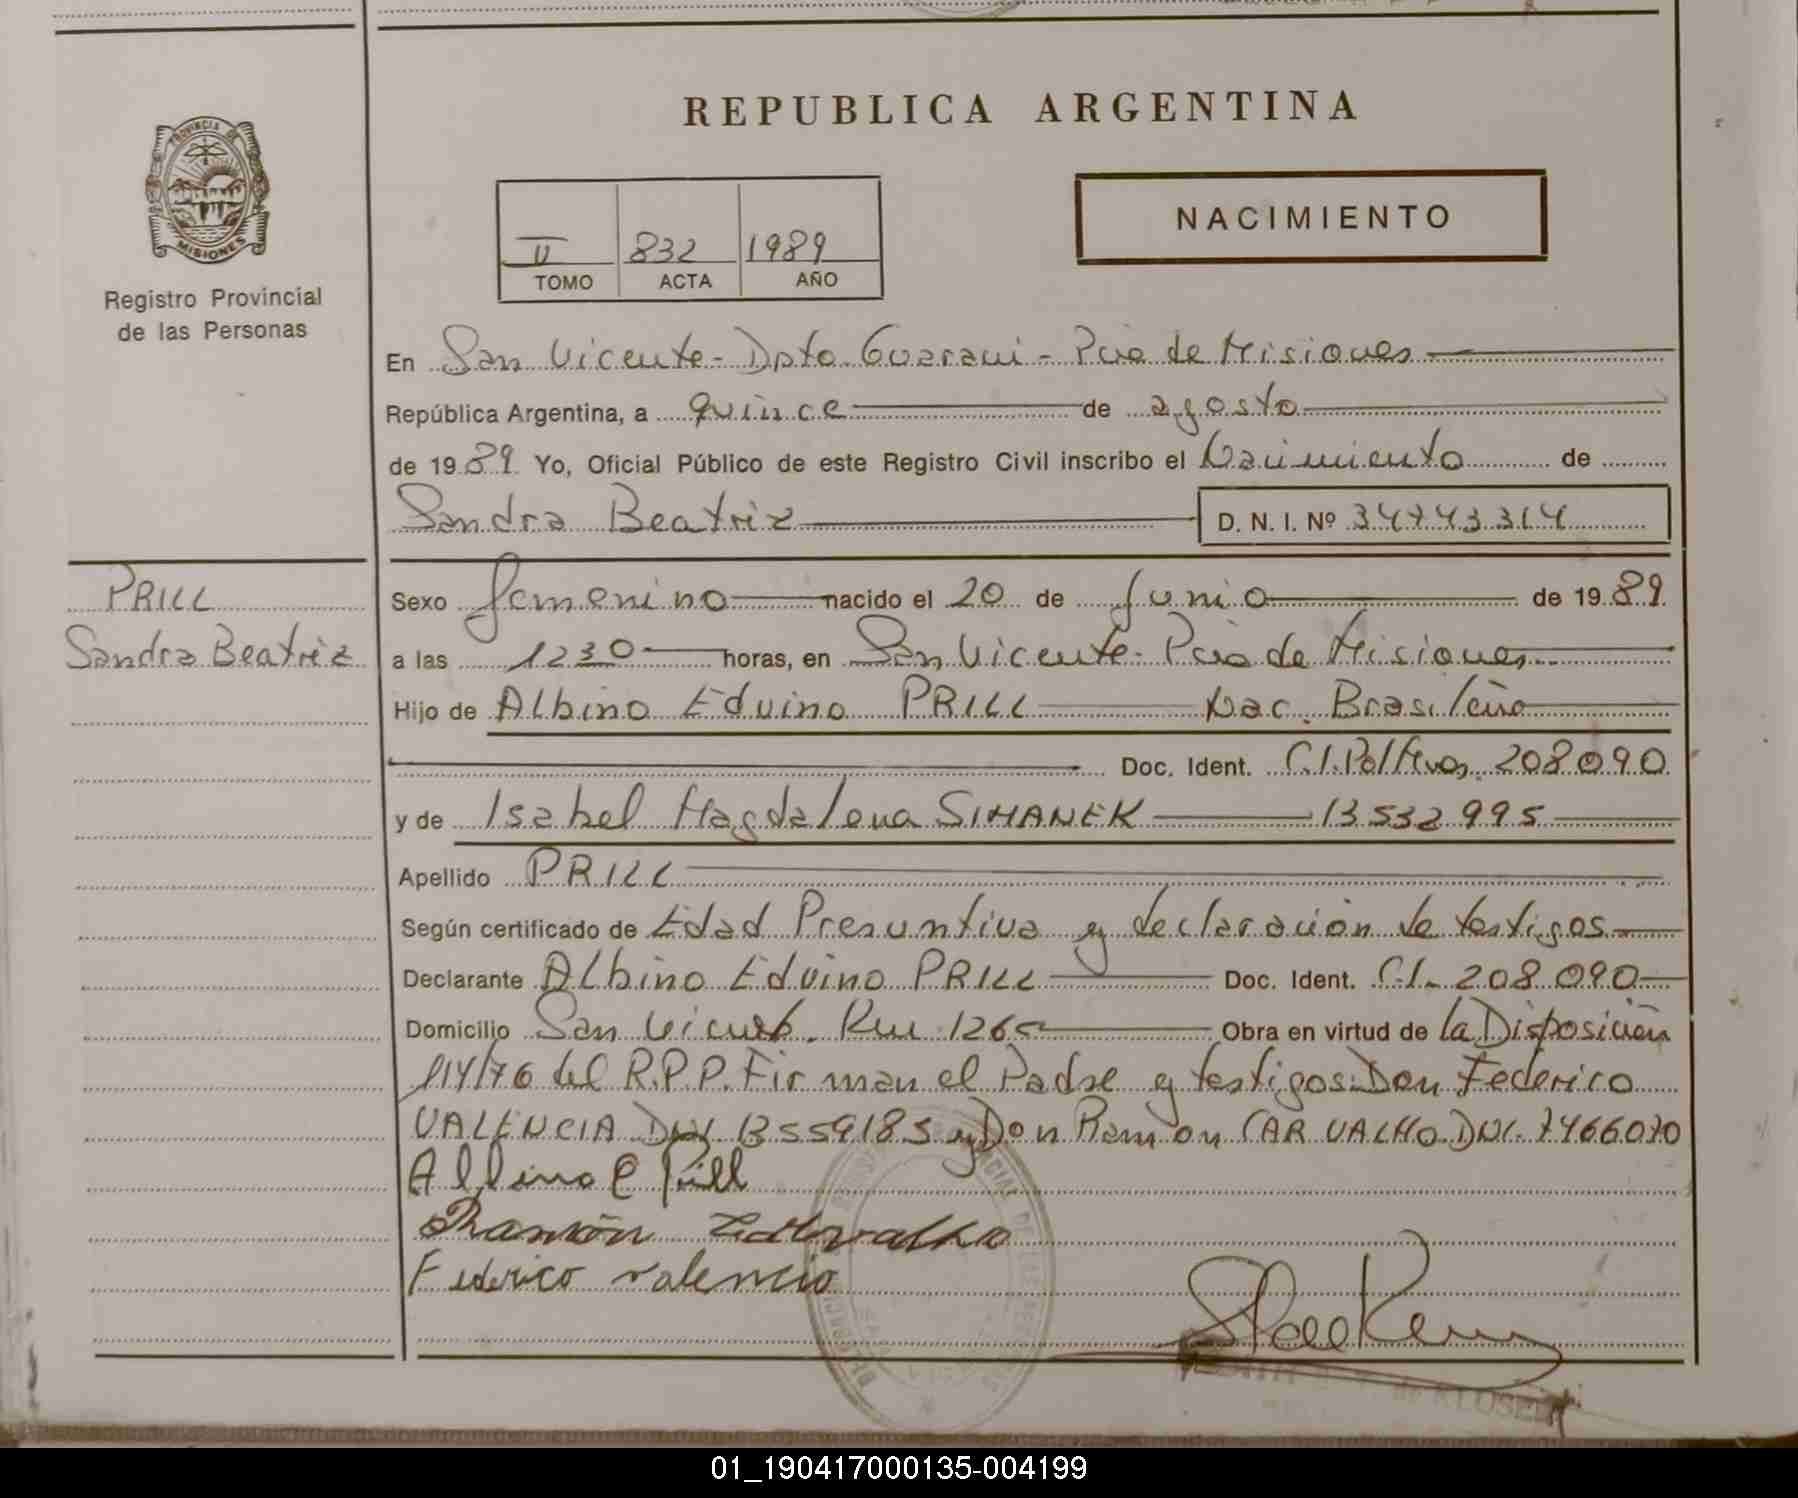 REPUBLICA ARGENTINA
PROVINCIA DE
MISIONES
Registro Provincial
de las Personas
NACIMIENTO
II 832 1989
TOMO ACTA AÑO
En San Vicente - Dpto. Guarani - Pcia de Misiones
República Argentina, a quince de agosto
de 1989 Yo, Oficial Público de este Registro Civil inscribo el Nacimiento de
Sandra Beatriz D. N. I. Nº 34743314
PRILL
Sandra Beatriz
Sexo femenino nacido el 20 de Junio de 1989
a las 1230 horas, en San Vicente - Pcia de Misiones
Hijo de Albino Eduino PRILL Nac. Brasileño
Doc. Ident. C.I. Pol Mnes. 208090
y de Isabel Magdalena SIMANEK 13532995
Apellido PRILL
Según certificado de Edad Presuntiva y declaración de testigos
Declarante Albino Eduino PRILL Doc. Ident. C.I. 208090
Domicilio San Vicente. Km 1265 Obra en virtud de la Disposición
114/76 del R.P.P. Firman el Padre y testigos Don Federico
VALENCIA DNI. 13559185 y Don Ramon CARVALHO. DNI. 7466070
Albino E Prill
Ramón Carvalho
Federico Valencio
KLUSEN
01_190417000135-004199